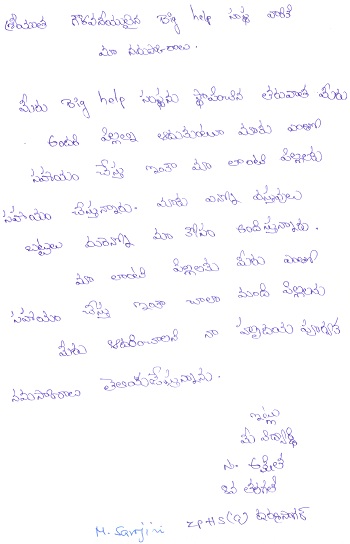 శ్రీయుత గౌరవనీయులైన Big help సంస్థ వారికి
మా నమస్కారాలు.
మీరు Big help సంస్థను స్థాపించిన తరువాత మీరు
అందరి పిల్లల్ని ఆదుకుంటూ మాకు ఎంతో
సహాయం చేస్తూ ఇంకా మా లాంటి పిల్లలకు
సహాయం చేస్తున్నారు. మాకు ఎన్నో వస్తువులు
బట్టలు మా కోసం అందిస్తున్నారు.
మా లాంటి పిల్లలకు మీరు ఎంతో
సహాయం చేస్తూ ఇంకా చాలా మంది పిల్లలను
మీరు ఆదరించాలని నా హృదయ పూర్వక
నమస్కారాలు తెలియచేస్తున్నాను.
ఇట్లు
మీ విద్యార్థి
N.
తరగతి
ZPHS(G)
M. Sarojini